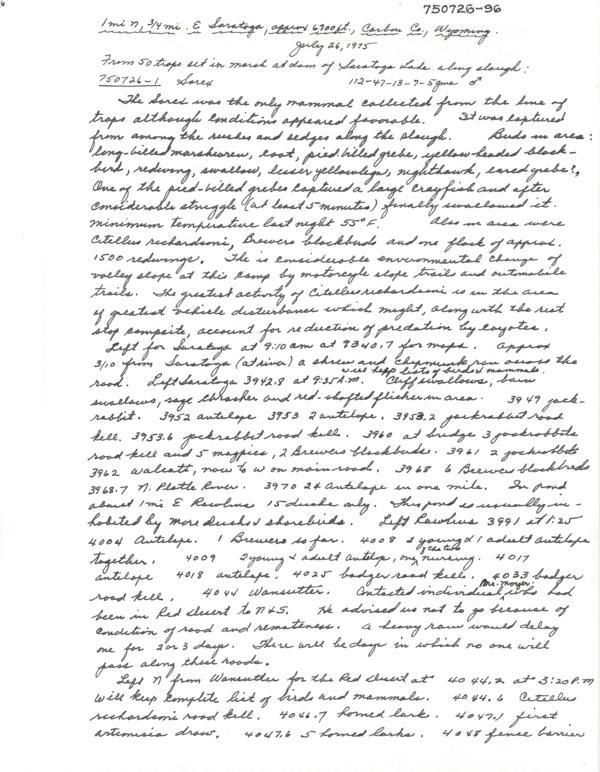 750726-96
1 mi N, 3/4 mi. E Saratoga, approx 6900 ft., Carbon Co., Wyoming.
July 26, 1975
From 50 traps set in marsh at dam of Saratoga Lake along slough:
750726-1 Sorex 112-47-13-7-5gms ♂
The Sorex was the only mammal collected from the line of
traps although conditions appeared favorable. It was captured
from among the rushes and sedges along the slough. Birds in area:
long-billed marsh wren, coot, pied-billed grebe, yellow-headed black-
bird, redwing, swallow, lesser yellowlegs, nighthawk, eared grebe?,
One of the pied-billed grebes captured a large crayfish and after
considerable struggle (at least 5 minutes) finally swallowed it.
Minimum temperature last night 55°F. Also in area were
Citellus richardsoni, Brewers blackbirds and one flock of approx.
1500 redwings. There is considerable environmental change of
valley slope at this camp by motorcycle slope trail and automobile
trails. The greatest activity of Citellus richardsoni is in the area
of greatest vehicle disturbance which might, along with the rest
stop campsite, account for reduction of predation by coyotes.
Left for Saratoga at 9:10 am at 8340.7 for maps. Approx
3/10 from Saratoga (at river) a shrew and chipmunk ran across the
road. Left Saratoga 3942.8 at 9:35 A.M. will keep lists of birds & mammals. Cliff swallows, barn
swallows, sage thrasher and red-shafted flicker in area. 3949 jack-
rabbit. 3952 antelope 3953 2 antelope. 3953.2 jackrabbit road
kill. 3953.6 jackrabbit road kill. 3960 at bridge 3 jackrabbits
road kill and 5 magpies, 2 Brewers blackbirds. 3961 2 jackrabbits
3962 Walcott, now to W on main road. 3968 6 Brewers blackbirds
3968.7 N. Platte River. 3970 24 antelope in one mile. In pond
about 1 mi E Rawlins 15 ducks only. This pond is usually in-
habited by more ducks & shorebirds. Left Rawlins 3991 at 1:25
4004 Antelope. 1 Brewers so far. 4008 2 young & 1 adult antelope
together. 4009 2 young & adult antelope, one of the two nursing. 4017
antelope 4018 antelope. 4025 badger road kill. 4033 badger
road kill. 4044 Wamsutter. Contacted individual, Mr. Moyer, who had
been in Red Desert to N & S. He advised us not to go because of
condition of road and remoteness. A heavy rain would delay
one for 2 or 3 days. There will be days in which no one will
pass along these roads.
Left N from Wamsutter for the Red Desert at 4044.2 at 3:20 P.M
Will keep complete list of birds and mammals. 4044.6 Citellus
richardsoni road kill. 4046.7 horned lark. 4047.1 first
artemisia draw. 4047.6 5 horned larks. 4048 fence barrier